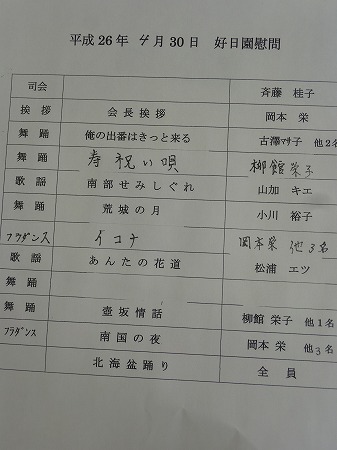 平成26年 4月30日 好日園慰問
司会 斉藤 桂子
挨拶 会長挨拶 岡本 栄
舞踊 俺の出番はきっと来る 古澤マサ子 他2名
舞踊 寿祝い唄 柳館栄子
歌謡 南部せみしぐれ 山加 キエ
舞踊 荒城の月 小川 裕子
フラダンス イコナ 岡本栄 他3名
歌謡 あんたの花道 松浦 エツ
舞踊
舞踊 壺坂情話 柳館 栄子 他1名
フラダンス 南国の夜 岡本 栄 他3名
北海盆踊り 全員